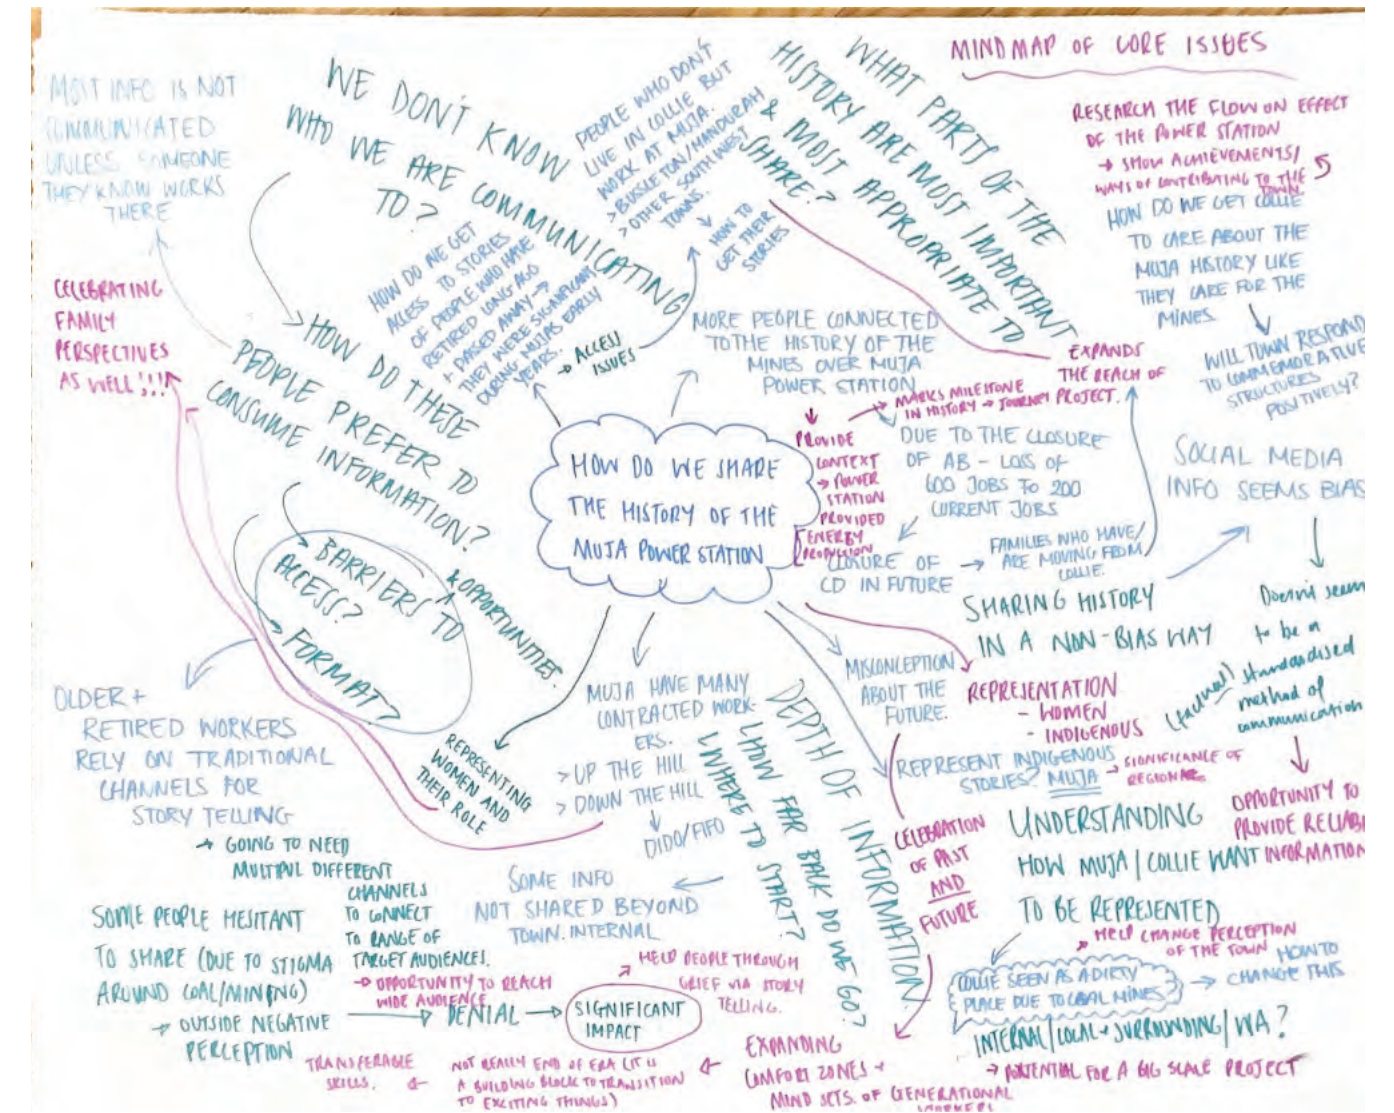 MINDMAP OF CORE ISSUES
MOST INFO IS NOT
COMMUNICATED
UNLESS SOMEONE
THEY KNOW WORKS
THERE
WE DON'T KNOW
WHO WE ARE COMMUNICATING
TO?
PEOPLE WHO DON'T
LIVE IN COLLIE BUT
WORK AT MUJA.
> BUSSELTON/MANDURAH
> OTHER SOUTH WEST
TOWNS.
HOW TO
GET THEIR
STORIES
WHAT PARTS OF THE
HISTORY ARE MOST IMPORTANT
& MOST APPROPRIATE TO
SHARE?
RESEARCH THE FLOW ON EFFECT
OF THE POWER STATION
→ SHOW ACHIEVEMENTS/
WAYS OF CONTRIBUTING TO THE
TOWN.
HOW DO WE GET COLLIE
TO CARE ABOUT THE
MUJA HISTORY LIKE
THEY CARE FOR THE
MINES.
WILL TOWN RESPOND
TO COMMEMORATIVE
STRUCTURES
POSITIVELY?
CELEBRATING
FAMILY
PERSPECTIVES
AS WELL!!!
HOW DO THESE
PEOPLE PREFER TO
CONSUME INFORMATION?
HOW DO WE GET
ACCESS TO STORIES
OF PEOPLE WHO HAVE
RETIRED LONG AGO
+ PASSED AWAY →
THEY WERE SIGNIFICANT
DURING MUJAS EARLY
YEARS.
→ ACCESS
ISSUES
MORE PEOPLE CONNECTED
TO THE HISTORY OF THE
MINES OVER MUJA
POWER STATION
EXPANDS
THE REACH OF
PROJECT.
MARKS MILESTONE
IN HISTORY → JOURNEY
PROVIDE
CONTEXT
→ POWER
STATION
PROVIDED
ENERGY
PRODUCTION
DUE TO THE CLOSURE
OF AB - LOSS OF
600 JOBS TO 200
CURRENT JOBS
CLOSURE OF
CD IN FUTURE
→ FAMILIES WHO HAVE/
ARE MOVING FROM
COLLIE.
HOW DO WE SHARE
THE HISTORY OF THE
MUJA POWER STATION
SOCIAL MEDIA
INFO SEEMS BIAS
SHARING HISTORY
IN A NON-BIAS WAY
Doesn't seem
to be a
(factual) standardised
method of
communication
OPPORTUNITY TO
PROVIDE RELIAB
INFORMATION
BARRIERS TO
ACCESS?
& OPPORTUNITIES.
FORMAT?
OLDER +
RETIRED WORKERS
RELY ON TRADITIONAL
CHANNELS FOR
STORY TELLING
→ GOING TO NEED
MULTIPUL DIFFERENT
CHANNELS
TO CONNECT
TO RANGE OF
TARGET AUDIENCES.
→ OPPORTUNITY TO REACH
WIDE AUDIENCE
REPRESENTING
WOMEN AND
THEIR ROLE
MUJA HAVE MANY
CONTRACTED WORK-
ERS.
> UP THE HILL
> DOWN THE HILL
DIDO/FIFO
SOME INFO
NOT SHARED BEYOND
TOWN. INTERNAL
DEPTH OF INFORMATION.
HOW FAR BACK DO WE GO?
WHERE TO START?
MISCONCEPTION
ABOUT THE
FUTURE.
REPRESENTATION
- WOMEN
- INDIGENOUS
REPRESENT INDIGENOUS
STORIES? MUJA
→ SIGNIFICANCE OF
CELEBRATION
OF PAST
AND
FUTURE
UNDERSTANDING
HOW MUJA/COLLIE WANT
TO BE REPRESENTED
→ HELP CHANGE PERCEPTION
OF THE TOWN
COLLIE SEEN AS A DIRTY
PLACE DUE TO COAL MINES
→ HOW TO
CHANGE THIS
INTERNAL/LOCAL + SURROUNDING/WA?
→ POTENTIAL FOR A BIG SCALE PROJECT
SOME PEOPLE HESITANT
TO SHARE (DUE TO STIGMA
AROUND COAL/MINING)
→ OUTSIDE NEGATIVE
PERCEPTION
DENIAL →
SIGNIFICANT
IMPACT
HELP PEOPLE THROUGH
GRIEF VIA STORY
TELLING.
EXPANDING
COMFORT ZONES +
MIND SETS. OF GENERATIONAL
NOT REALLY END OF ERA (IT IS
A BUILDING BLOCK TO TRANSITION
TO EXCITING THINGS)
TRANSFERABLE
SKILLS.